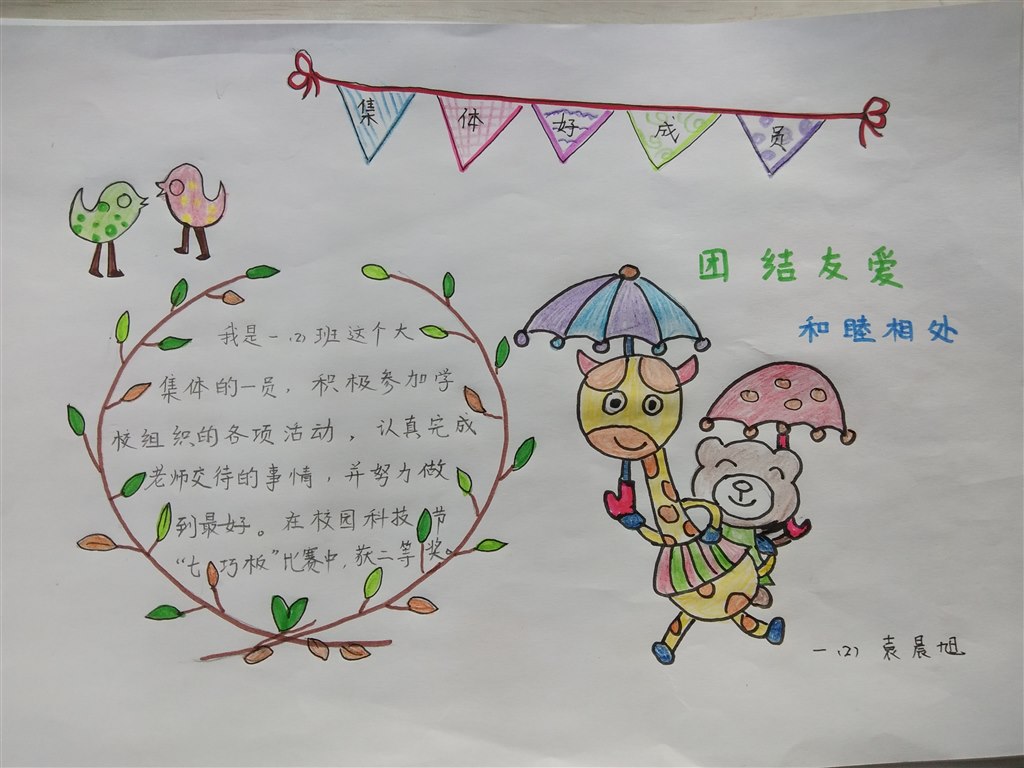 集体好成员
团结友爱
和睦相处
我是一(2)班这个大
集体的一员，积极参加学
校组织的各项活动，认真完成
老师交待的事情，并努力做
到最好。在校园科技节
“七巧板”比赛中，获二等奖。
一(2) 袁晨旭